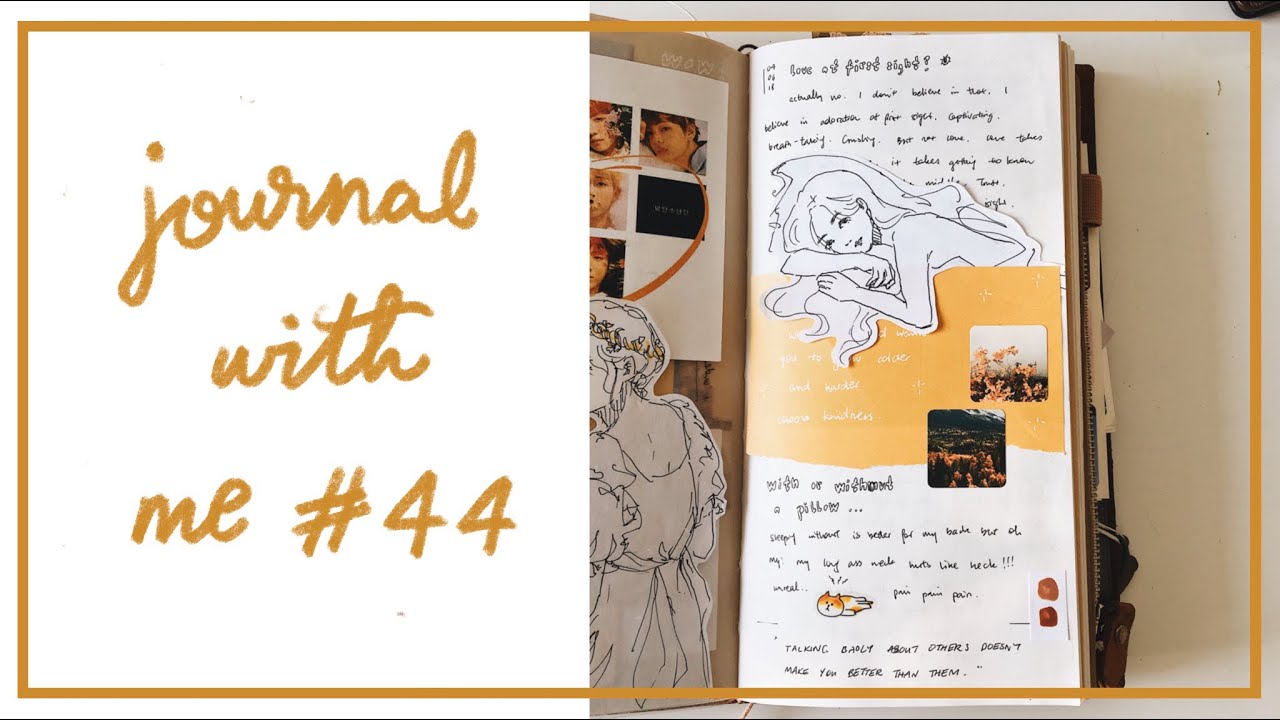 journal
with
me #44
wow
방탄소년단
04
06
18
love at first sight?
actually no. I don't believe in that. I
believe in adoration at first sight. Captivating.
breath-taking. Crushing. But not love. Love takes
it takes getting to know
middle. Trust.
sight
you to grow colder
and harder.
choose kindness.
with or without
a pillow...
sleeping without is better for my back but oh
my! my long ass neck hurts like heck!!!
unreal..
pain pain pain.
"TALKING BADLY ABOUT OTHERS DOESN'T
MAKE YOU BETTER THAN THEM."